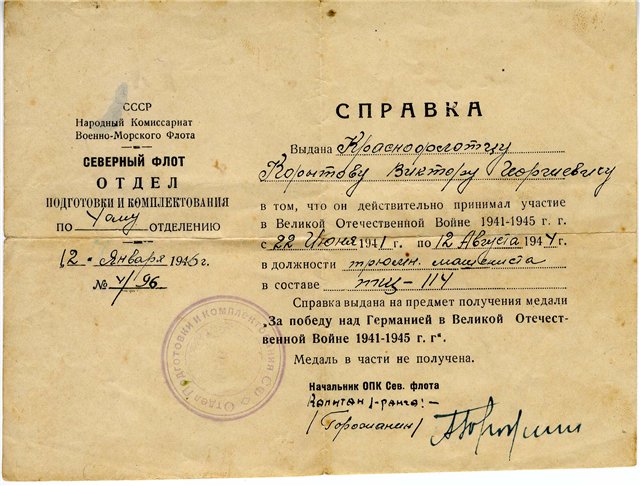 СССР
Народный Комиссариат
Военно-Морского Флота
СЕВЕРНЫЙ ФЛОТ
ОТДЕЛ
ПОДГОТОВКИ И КОМПЛЕКТОВАНИЯ
ПО 4ому ОТДЕЛЕНИЮ
12 " Января 1946 г.
№ 4/96
СПРАВКА
Выдана Краснофлотцу
Корытову Виктору Георгиевичу
в том, что он действительно принимал участие
в Великой Отечественной Войне 1941-1945 г. г.
с 22 Июня 1941 г. по 12 Августа 1944 г.
в должности трюмн. машиниста
в составе тщ-114
Справка выдана на предмет получения медали
„За победу над Германией в Великой Отечест-
венной Войне 1941-1945 г. г".
Медаль в части не получена.
Начальник ОПК Сев. флота
Капитан 1-ранга: -
/Горожанин/
Отдел Подготовки и Комплектования СФ